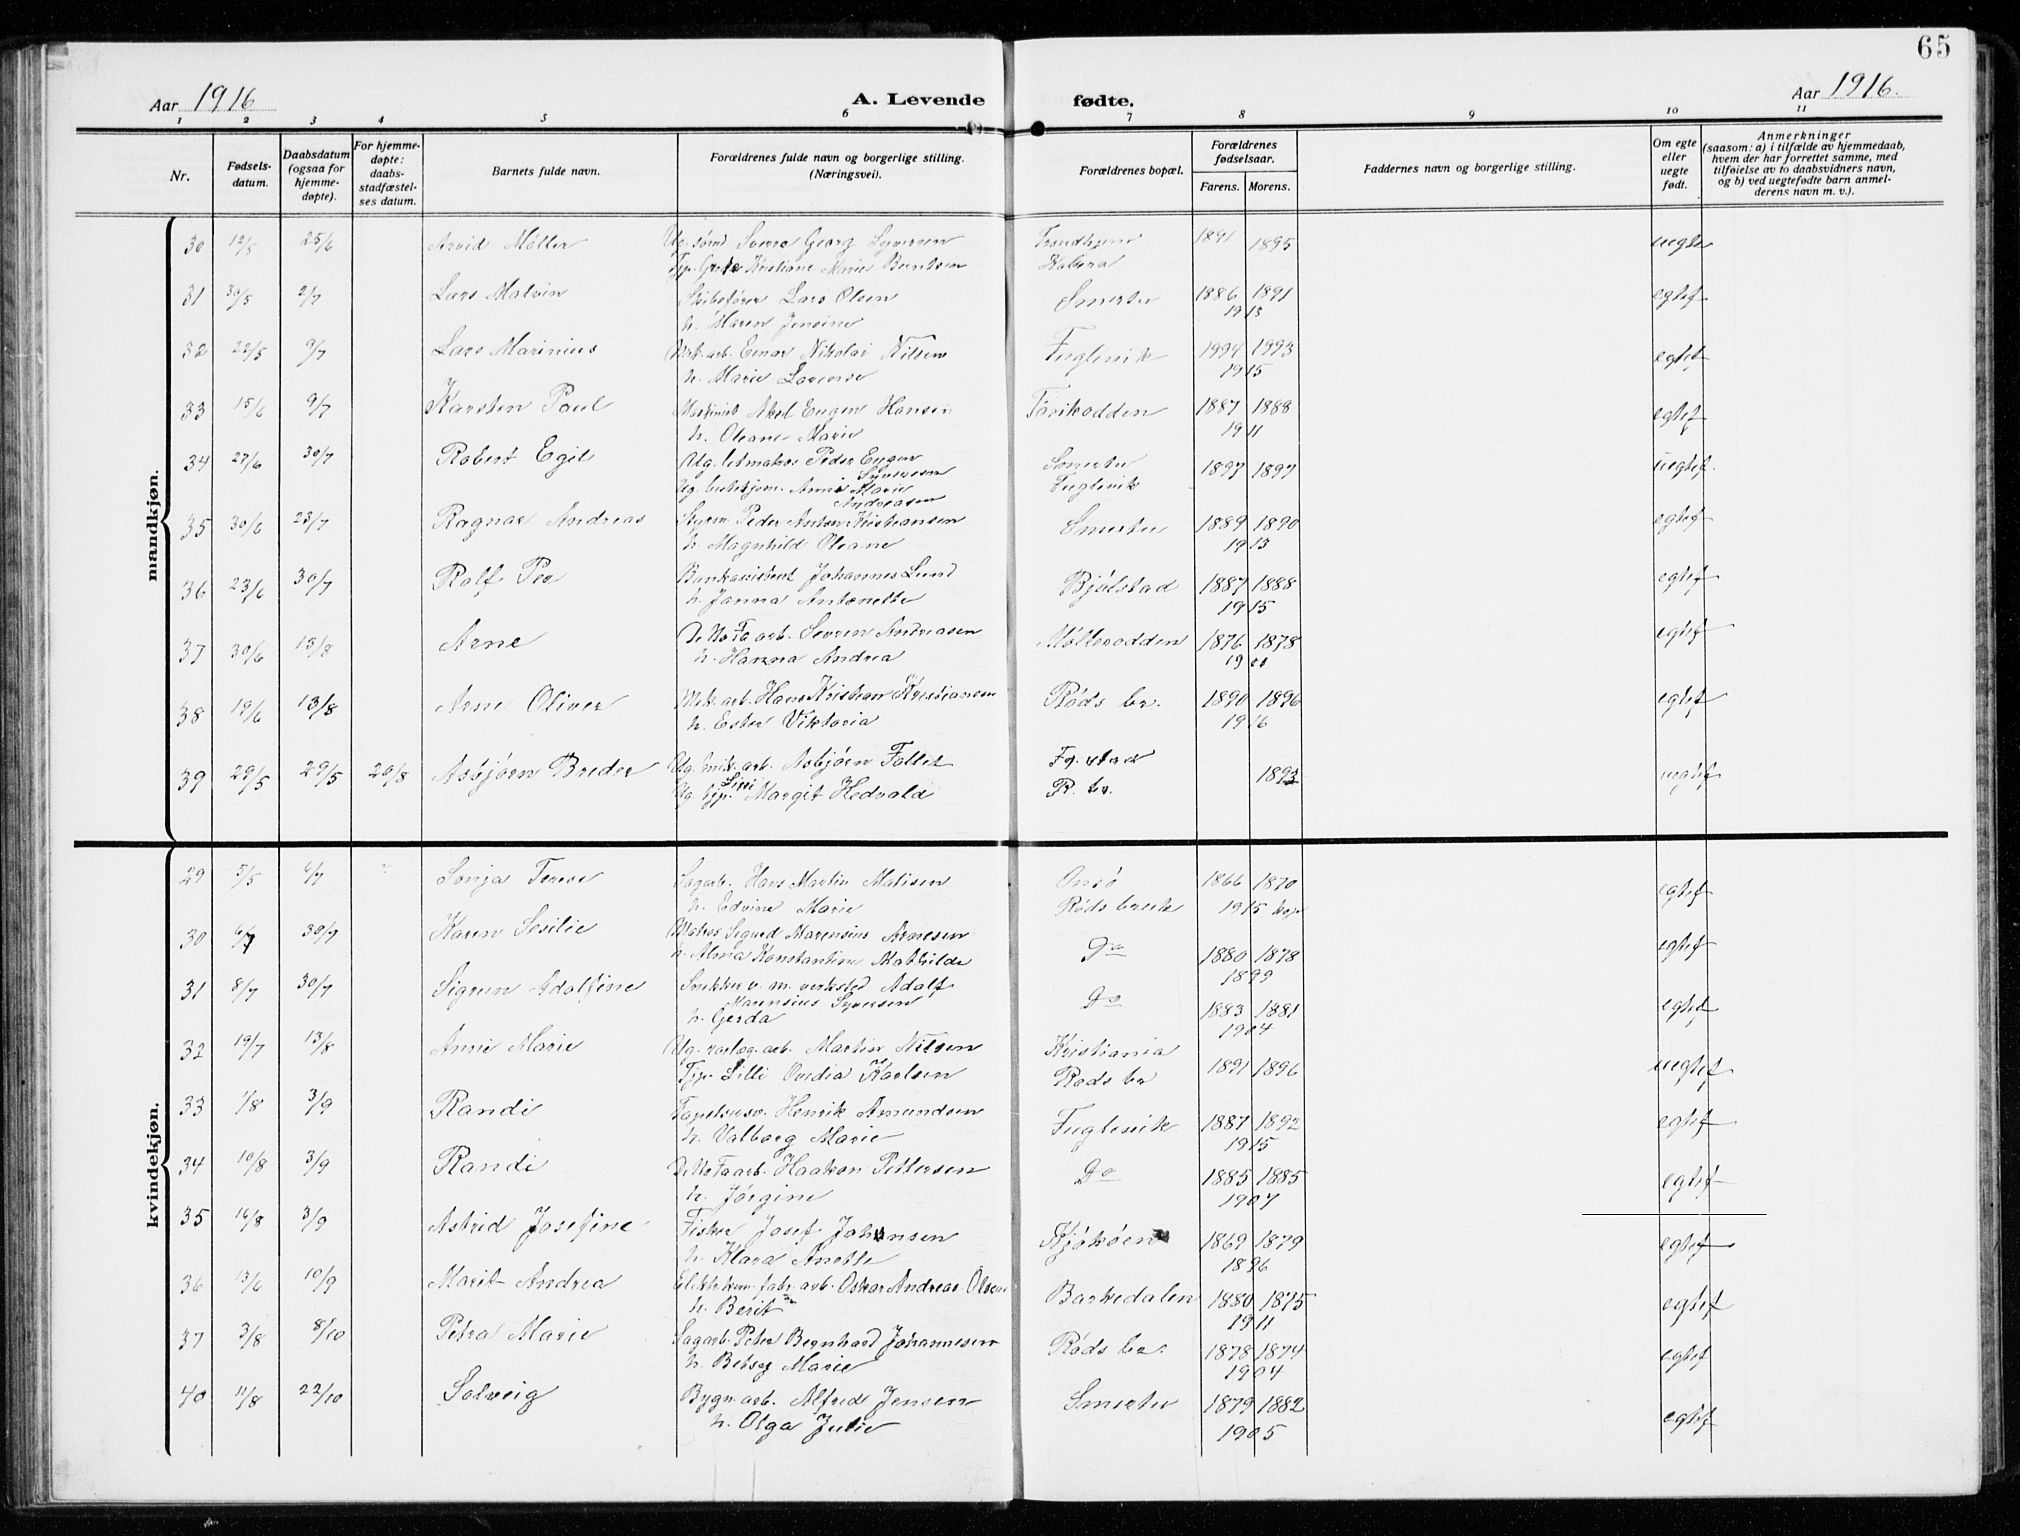 65
Aar 1916
A. Levende fødte.
Aar 1916.
1 2 3 4 5 6 7 8 9 10 11
Nr.
Fødsels-
datum.
Daabsdatum
(ogsaa for
hjemme-
døpte).
For hjemme-
døpte:
daabs-
stadfæstel-
ses datum.
Barnets fulde navn.
Forældrenes fulde navn og borgerlige stilling.
(Næringsvei).
Forældrenes bopæl.
Forældrenes
fødselsaar.
Farens. Morens.
Faddernes navn og borgerlige stilling.
Om egte
eller
uegte
født.
Anmerkninger
(saasom: a) i tilfælde av hjemmedaab,
hvem der har forrettet samme, med
tilføielse av to daabsvidners navn,
og b) ved uegtefødte barn anmel-
derens navn m. v.).
mandkjøn.
30 12/5 25/6 Arvid Møller Ug. sømd. Sverre Georg Syversen Trondhjem 1891 1895 uegte
Kristiane Marie Berntsen
31 30/5 2/7 Lars Malvin Skibsfører Lars Olsen Smertu 1886 1891 egtef
h. Maren Jensine 1913
32 22/5 9/7 Lars Marinius Mek. arb. Einar Nikolai Nilsen Fuglevik 1994 1993 egtef
h. Marie Lovense 1915
33 15/6 9/7 Karsten Paul Maskinist Aksel Eugen Hansen 1887 1888 egtef
h. Oleane Marie 1911
34 27/6 30/7 Robert Egil Ug. letmatros Peder Eugen Smertu 1897 1897 uegtef.
Syversen
Anna Marie Fuglevik
Andreasen
35 30/6 23/7 Ragnar Andreas Styrm. Peder Anton Kristiansen Smertu 1889 1890 egtef
h. Magnhild Oleane 1913
36 23/6 30/7 Rolf Per Bankassistent Johannes Lund Bjølstad 1887 1888 egtef
h. Janna Antonette 1915
37 30/6 13/8 Arne De No Fa arb. Severin Andreasen Møllerodden 1876 1878 egtef
h. Hanna Andrea
38 19/6 13/8 Arne Oliver Mek. arb. Hans Kristian Kristiansen Røds br. 1890 1896 egtef
h. Ester Viktoria 1916
39 29/5 29/5 20/8 Asbjørn Breder Ug. mek. arb. Asbjørn Follet Fr. stad 1893
Ug. tjp. Margit Hedvald R. br.
kvindekjøn.
29 5/5 Sonja Terese Sagarb. Hans Martin Matisen Onsø 1866 1870 egtef
h. Edvine Marie Røds bruk 1915
30 6/7 30/7 Karen Sesilie Matros Sigurd Marensius Arnesen Do 1880 1878 egtef
h. Alma Konstantine Mathilde 1899
31 8/7 30/7 Sigrun Adolfine Snikker v. m. verksted Adolf Do 1883 1881 egtef
Marensius Syversen
h. Gerda 1904
32 19/7 13/8 Anne Marie Martin Nilsen Kristiania 1891 1896 uegtef
Tjp. Lilli Ovedia Karlsen Røds br
33 1/8 3/9 Randi Henrik Amundsen Fuglevik 1887 1892 egtef
h. Valborg Marie 1915
34 10/8 3/9 Randi De No Fa arb. Haakon Pettersen Do 1885 1885 egtef
h. Jørgine 1907
35 16/8 3/9 Astrid Josefine Fisker Josef Johansen Kjøkøen 1869 1879 egtef
h. Klara Anette 1896
36 13/6 10/9 Marit Andrea Elektr. kem. fabr. arb. Oskar Andreas Olsen Barkedalen 1880 1875 egtef
h. Berit 1911
37 3/8 8/10 Petra Marie Sagarb. Peter Bernhard Johannesen Røds br. 1878 1874 egtef
h. Betsey Marie 1904
40 11/8 22/10 Solveig Bygn. arb. Alfred Jensen Smertu 1879 1882 egtef
h. Olga Julie 1905